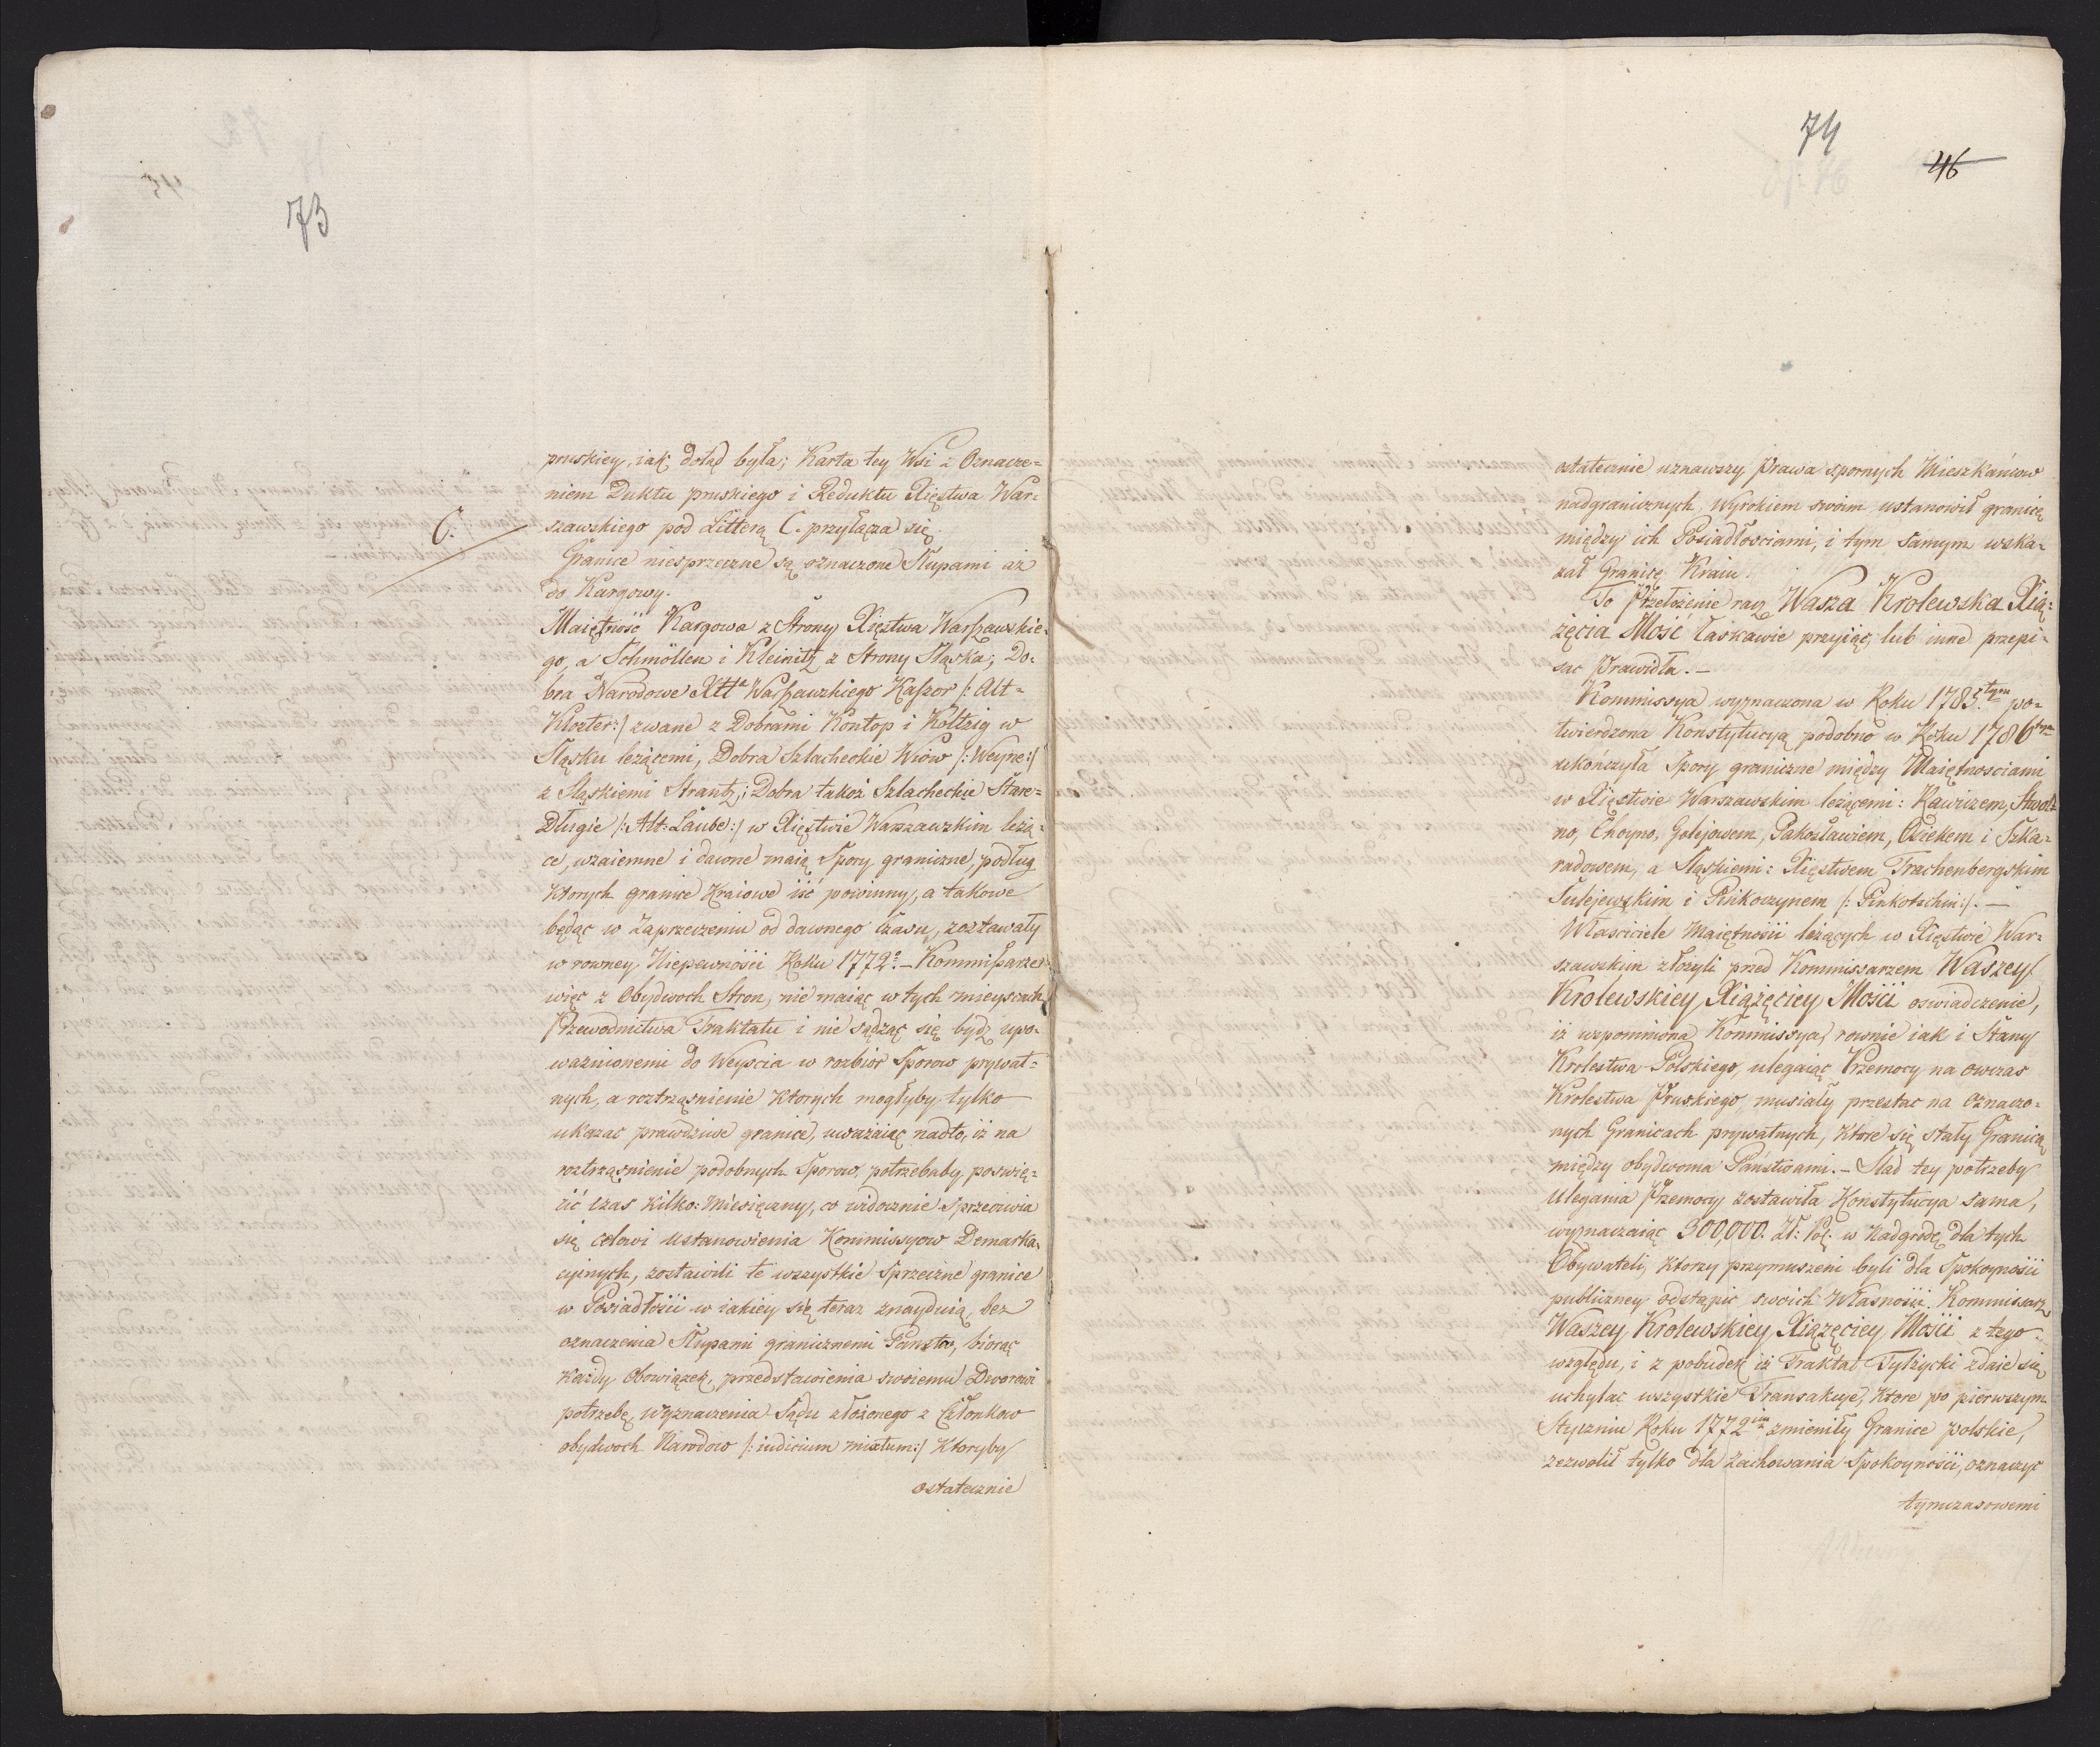 73
pruskiey, iak dotąd była; Karta tey Wsi z Oznacze=
niem Duktu pruskiego i Reduktu Xięstwa War=
C. szawskiego pod Litterą C. przyłącza się.
Granice niesprzeczne są oznaczone Słupami aż
do Kargowy.
Maiętność Kargowa z Strony Xięstwa Warszawskie=
go, a Schmöllen i Kleinitz z Strony Sląska; Do=
bra Narodowe Xttª Warszawskiego Kaszor /: Alt=
Kloster:/ zwane z Dobrami Kontop i Koltzig w
Sląsku leżącemi, Dobra Szlacheckie Wiow /: Weyne:/
z Sląskiemi Strantz; Dobra takoż Szlacheckie Stare=
Długie /: Alt=Laube:/ w Xięstwie Warszawskim leżą=
ce, wzaiemne i dawne maią Spory graniczne, podług
ktorych granice Kraiowe iść powinny, a takowe
będąc w Zaprzeczeniu od dawnego Czasu, zostawały
w rowney Niepewności Roku 1772º. – Kommissarze
więc z Obydwoch Stron, nie maiąc w tych mieyscach
Przewodnictwa Traktatu i nie sądząc się bydź upo=
ważnionemi do Weyscia w rozbiór Sporow prywat=
nych, a roztrząsnienie ktorych mogłyby tylko
ukazac prawdziwe granice, uważaiąc nadto, iż na
roztrząsnienie podobnych Sporow, potrzebaby poswię=
cić czas kilko=miesięczny, co widocznie Sprzeciwia
się celowi ustanowienia Kommissyow Demarka=
cyinych, zostawili te wszystkie Sprzeczne granice
w Posiadłości w iakiey się teraz znayduią, bez
oznaczenia Słupami granicznemi Państw, biorąc
każdy Obowiązek, przedstawienia swoiemu Dworowi
potrzebę wyznaczenia Sądu złożonego z Członkow
obydwoch Narodow /: iudicium mixtum:/ Ktoryby
ostatecznie
74
46
ostatecznie uznawszy Prawa spornych Mieszkańcow
nadgranicznych, Wyrokiem swoim ustanowił granicę
między ich Posiadłosciami, i tym samym wska=
zał Granicę Kraiu.
To Przełożenie racz Wasza Krolewska Xią=
żęcia Mość łaskawie przyiąc, lub inne przepi=
sac Prawidła. –
Kommissya wyznaczona w Roku 1785.tym po=
twierdzona Konstytucyą podobno w Roku 1786tym
ukończyła Spory graniczne między Maiętnosciami
w Xięstwie Warszawskim leżącemi: Rawiczem, Stwol=
no, Choyno, Golejowem, Pakosławiem, Osiekem i Szka=
radowem, a Sląskiemi: Xięstwem Trachenbergskim
Sulejewskim i Pinkoczynem /: Pinkotschin:/. –
Właściciele Maiętności leżących w Xięstwie War=
szawskim złożyli przed Kommissarzem Waszey
Krolewskiey Xiążęciey Mości oswiadczenie,
iż wspomniona Kommissya, rownie iak i Stany
Krolestwa Polskiego, ulegaiąc Przemocy na owczas
Krolestwa Pruskiego, musiały przestac na oznaczo=
nych Granicach prywatnych, ktore się stały Granicą
między obydwoma Państwami. – Slad tey potrzeby
Ulegania Przemocy zostawiła Konstytucya sama,
wyznaczaiąc 300,000. Zł: Pol: w Nadgrodę dla tych
Obywateli, ktorzy przymuszeni byli dla Spokoyności
publiczney odstąpic swoich Własności. Kommissarz
Waszey Krolewskiey Xiążęciey Mości z tego
względu, i z pobudek iż Traktat Tylżycki zdaie się
uchylac wszystkie Transakcye, ktore po pierwszym
Styczniu Roku 1772im zmieniły Granice polskie,
zezwolił tylko dla zachowania Spokoyności, oznaczyc
tymczasowemi